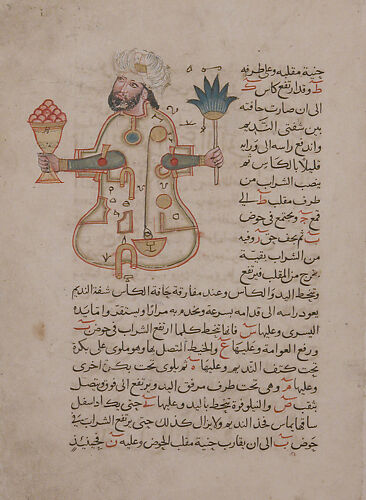 جنبة مقلبه وعلى طرفه
ط وقد ارتفع كاس ك
الى ان صارت حافته
بين شفتي النديم
واندفع راسه الى ورايه
قليلا بالكاس ثم
ينصب الشراب من
طرف مقلب ط الى
قمع ج ويجتمع في حوض
ثم يجف حق روفيه
من الشراب بقية
تخرج من المقلب فيرتفع
وتنحط اليد والكاس وعند مفارقة حافة الكاس شفة النديم
يعود راسه الى قدامه بسرعة ويخدم به مرارا ويستقف واما يده
اليسرى وعليها س فانها تنحط كلما ارتفع الشراب في حوض ب
ورفع العوامة وعليها ع والخيط المتصل بها وهو ملوى على بكرة
تحت كتف النديم وعليها ه ثم يلوى تحت بكرة اخرى
وعليها م وهي تحت طرف مرفق اليد ويرتفع الى فوق ويتصل
بثقب ص والنيلوفرة تنحط باليد وعليها حتى يكاد اسفل
ساقها يماس فخذ النديم ولا يزال كذلك حتى يرتفع الشراب في
حوض ب الى ان يقارب جنبة مقلب الحوض وعليه ن فحينئذ